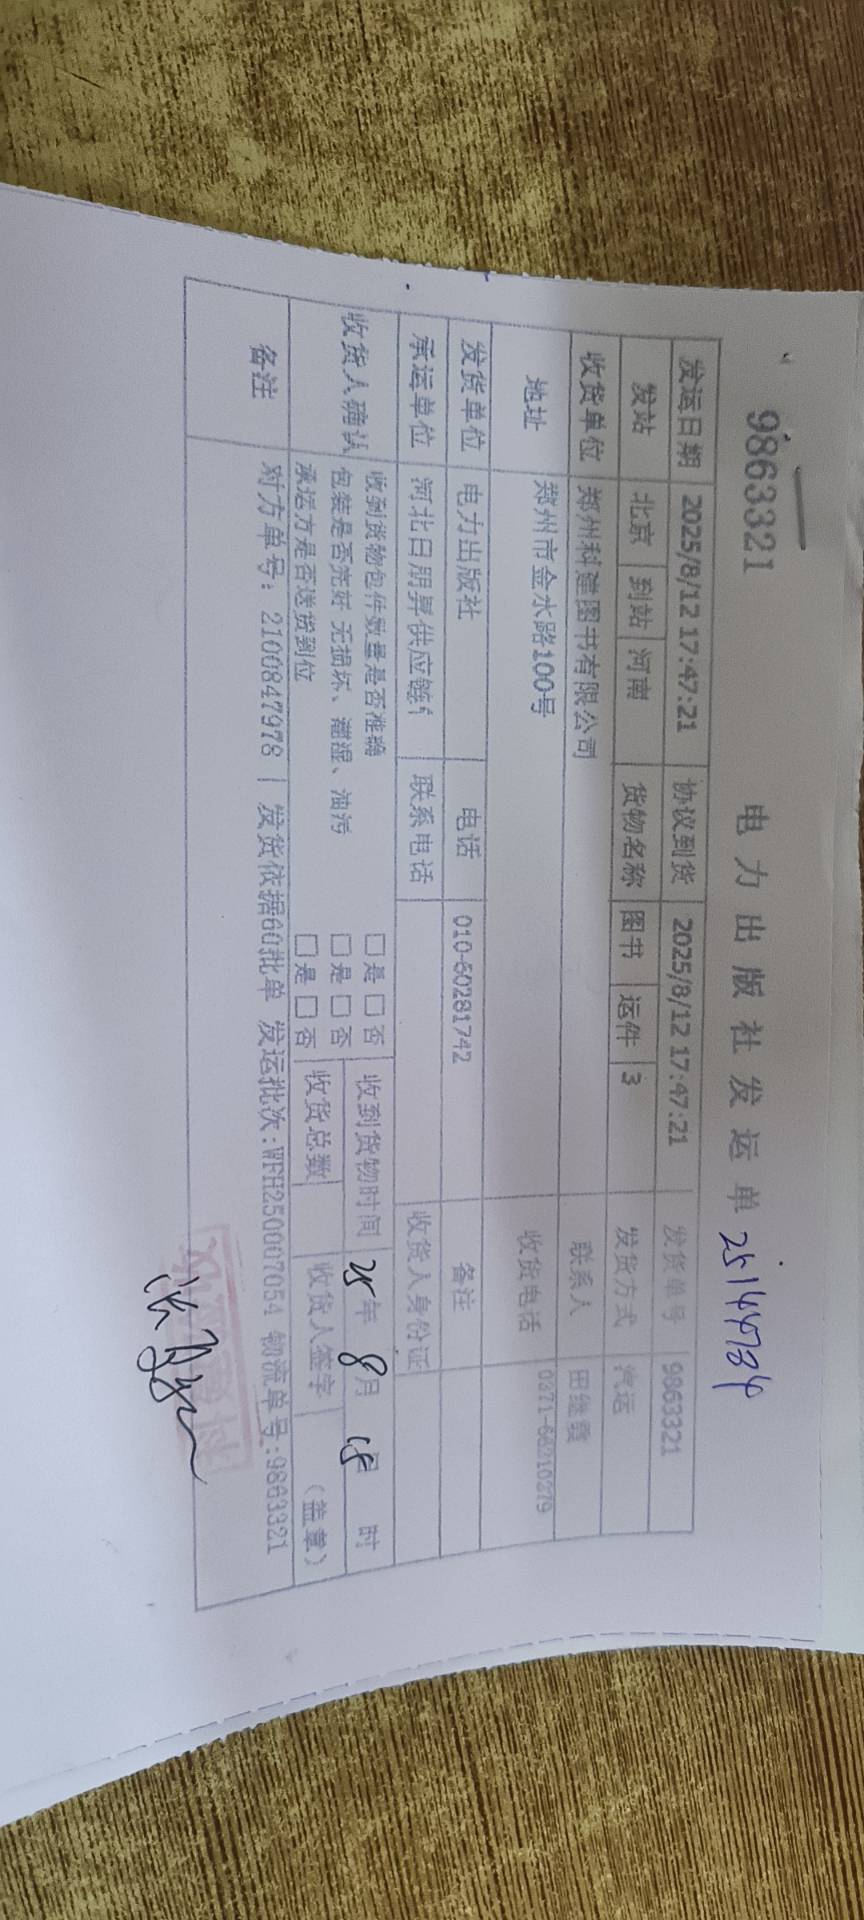 9863321
电力出版社发运单 25144784
发运日期 2025/8/12 17:47:21 协议到货 2025/8/12 17:47:21 发货单号 9863321
发站 北京 到站 河南 货物名称 图书 运件 3 发货方式 汽运
收货单位 郑州科建图书有限公司 联系人
地址 郑州市金水路100号 收货电话 0371-66310279
发货单位 电力出版社 电话 010-60281742 备注
承运单位 河北日朋昇供应链 联系电话 收货人身份证
收货人确认 收到货物包件数量是否准确 □是□否 收到货物时间 25年 8月 日 时
包装是否完好 无损坏、潮湿、油污 □是□否
承运方是否送货到位 □是□否 收货总数 收货人签字 (盖章)
备注 对方单号: 2100847978 | 发货依据60批单 发运批次:WFH250007054 物流单号:9863321